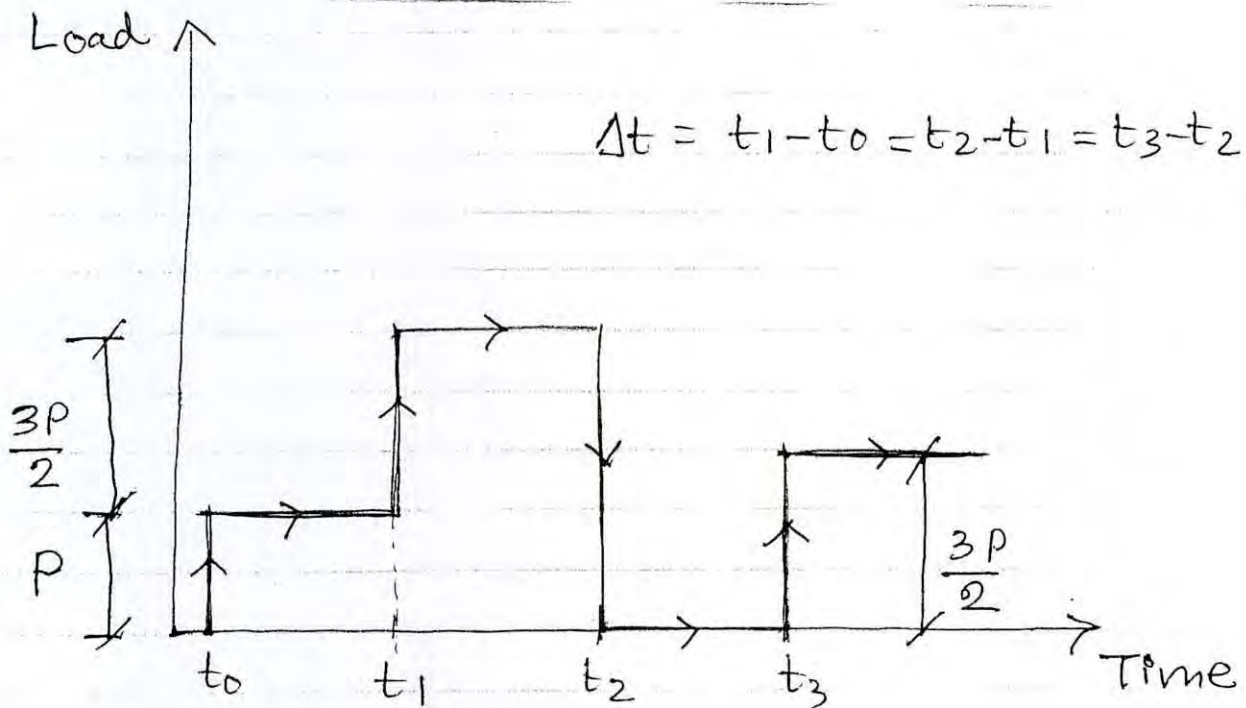 Load
Δt = t1-t0 = t2-t1 = t3-t2
3P/2
P
3P/2
t0 t1 t2 t3 Time